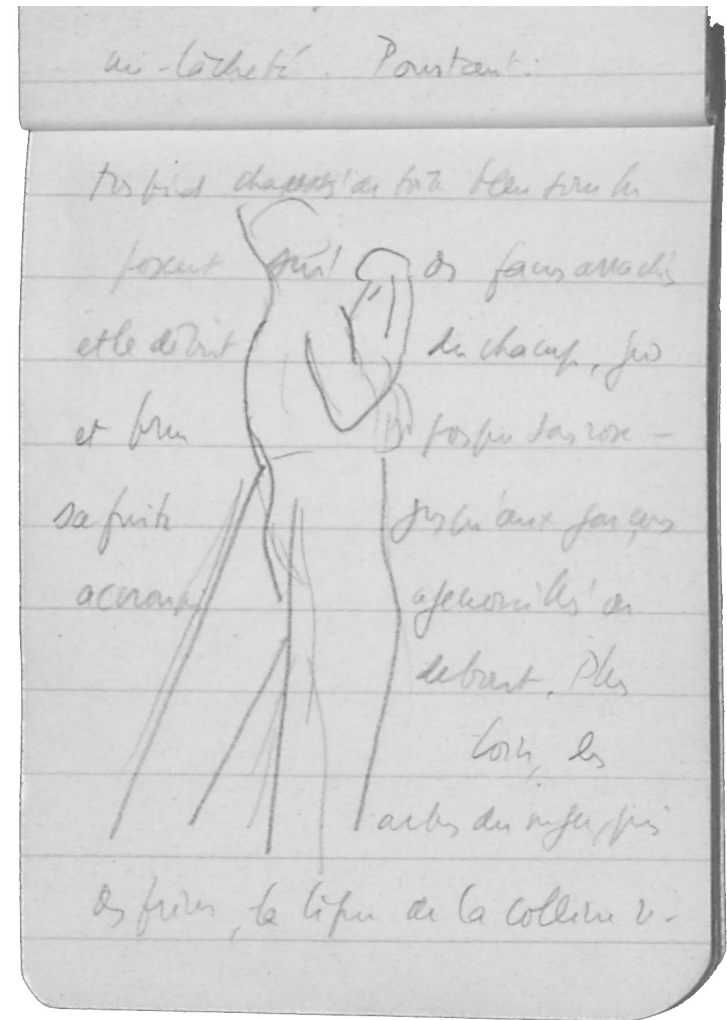 -lâcheté. Pourtant.
pieds de toile bleu sombre
posent sur des fanes arrachées
et le début du champ, gris
et brun presque rose –
sa fuite jusqu'aux garçons
accroupis agenouillés ou
debout. Plus
loin, les
arbres du verger, puis
des frênes, la ligne de la colline